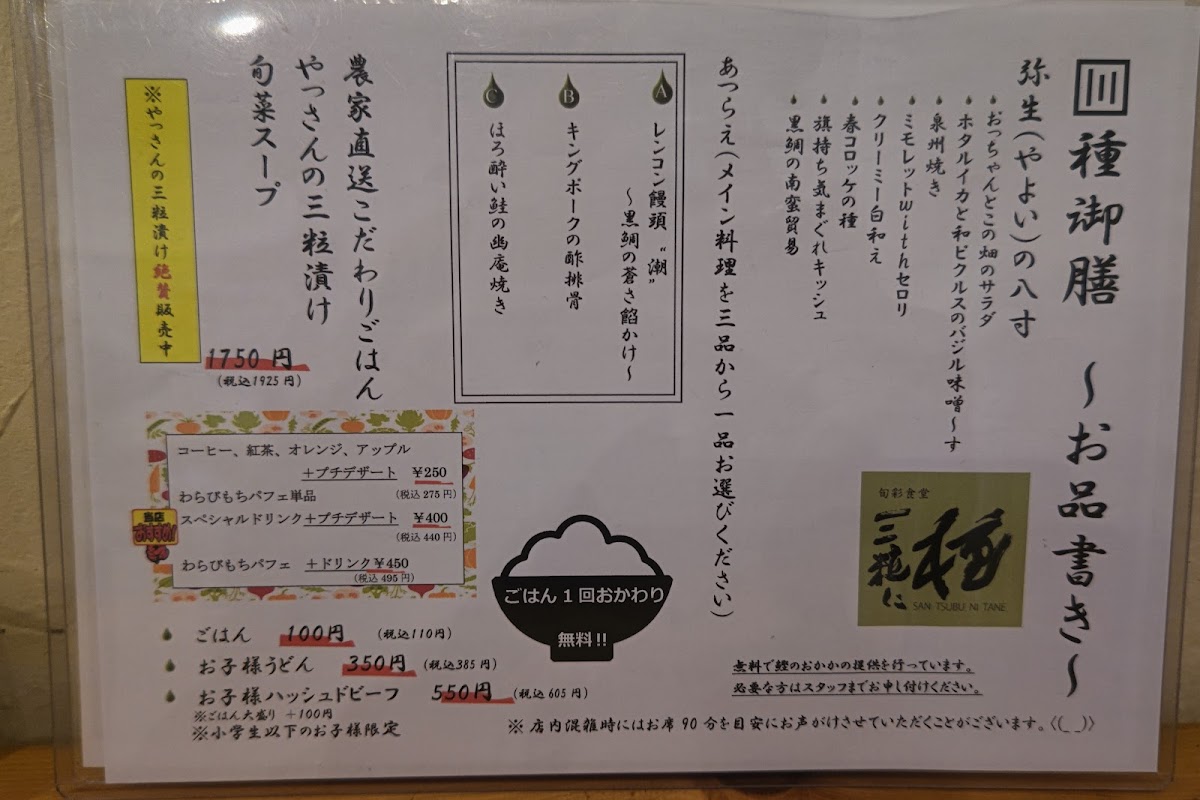 種御膳 〜お品書き〜
弥生(やよい)の八寸
おっちゃんとこの畑のサラダ
ホタルイカと和ピクルスのバジル味噌〜す
泉州焼き
ミモレットwithセロリ
クリーミー白和え
春コロッケの種
旗持ち気まぐれキッシュ
黒鯛の南蛮貿易
あつらえ(メイン料理を三品から一品お選びください)
A レンコン饅頭〝潮〟
〜黒鯛の蒼さ餡かけ〜
B キングポークの酢排骨
C ほろ酔い鮭の幽庵焼き
農家直送こだわりごはん
やっさんの三粒漬け
旬菜スープ
※やっさんの三粒漬け絶賛販売中
1750円
(税込1925円)
コーヒー、紅茶、オレンジ、アップル
+プチデザート ¥250
わらびもちパフェ単品 (税込275円)
当店
おすすめ!
スペシャルドリンク+プチデザート ¥400
(税込440円)
わらびもちパフェ +ドリンク¥450
(税込495円)
ごはん1回おかわり
無料!!
旬彩食堂
三粒に
種
SAN TSUBU NI TANE
ごはん 100円 (税込110円)
お子様うどん 350円 (税込385円)
お子様ハッシュドビーフ 550円 (税込605円)
※ごはん大盛り +100円
※小学生以下のお子様限定
無料で鰹のおかかの提供を行っています。
必要な方はスタッフまでお申し付けください。
※店内混雑時にはお席90分を目安にお声がけさせていただくことがございます。<(_ _)>